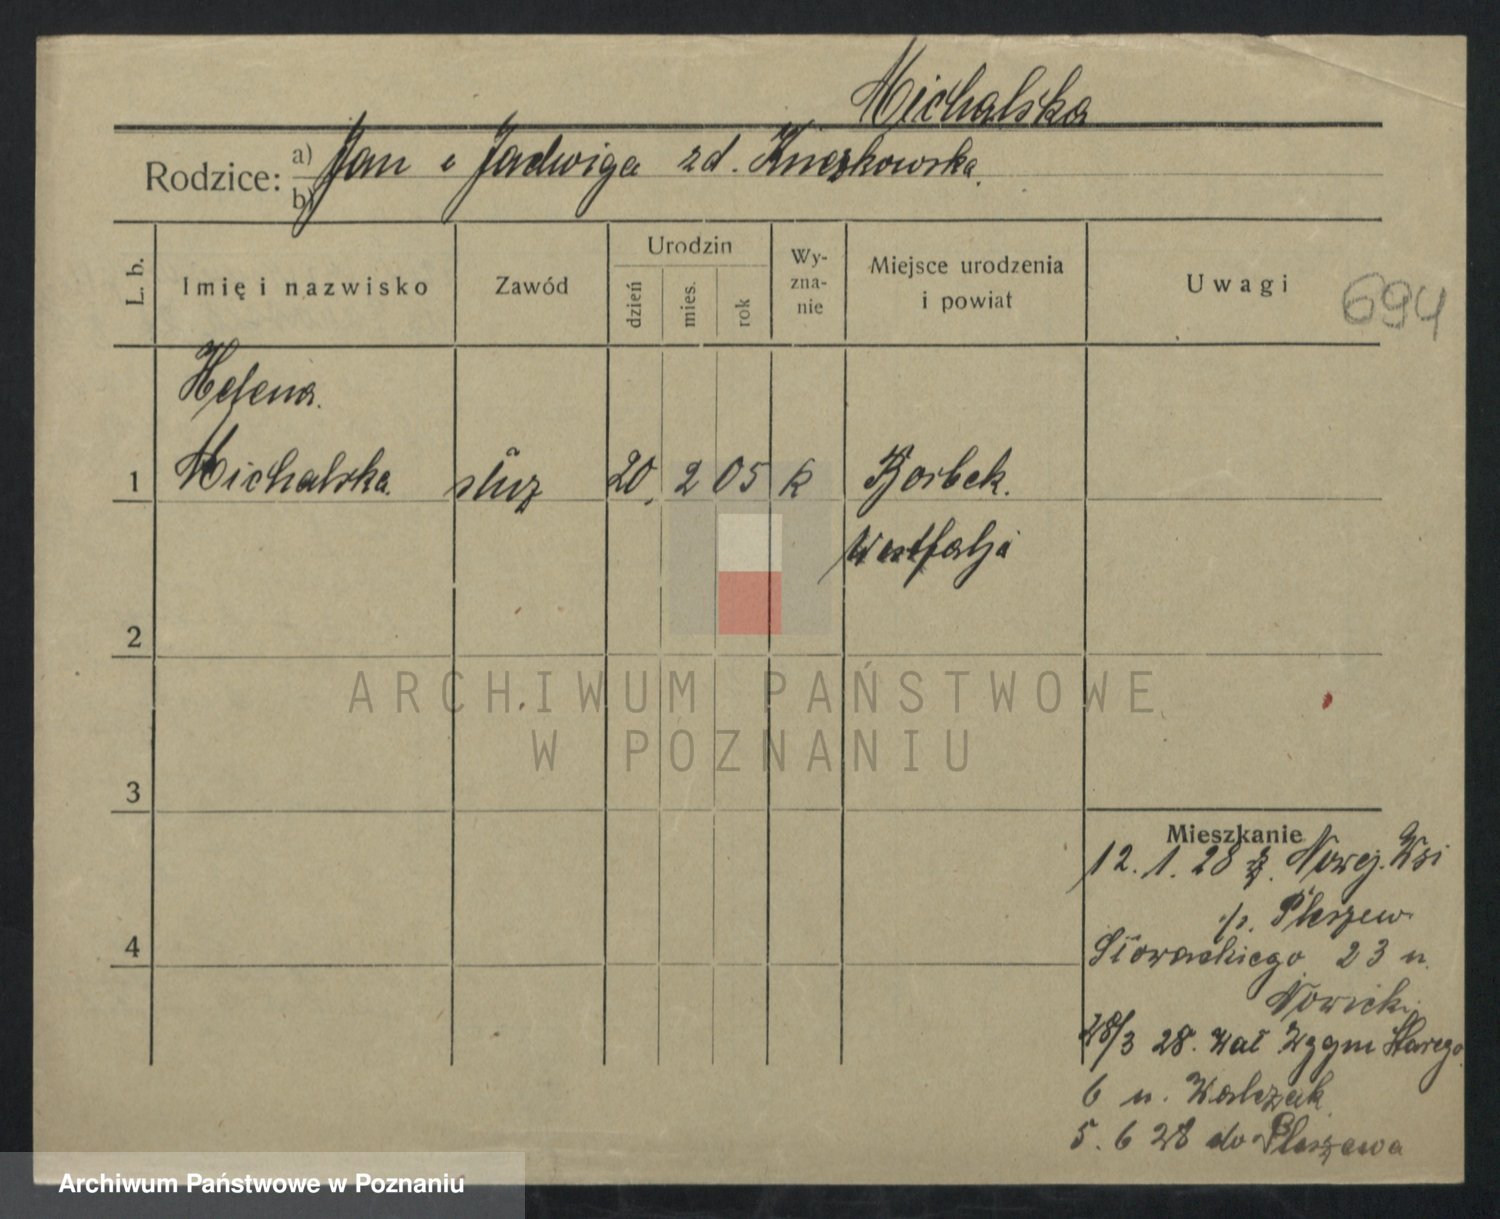 Michalska
Rodzice: a) Jan i Jadwiga zd.
b)
L. b. Imię i nazwisko Zawód Urodzin dzień mies. rok Wy-zna-nie Miejsce urodzenia i powiat Uwagi
694
Helena
1 Michalska służ 20. 2 05 k Borbek.
Westfalja
2
3
4
Mieszkanie
12. 1. 28 z. Nowej. Wsi
p. Pleszew
Słowackiego 23 u.
Nowick
28/3 28. Wał Zygm Starego
6 u. Walczak
5. 6 28 do Pleszewa
ARCHIWUM PAŃSTWOWE
W POZNANIU
Archiwum Państwowe w Poznaniu